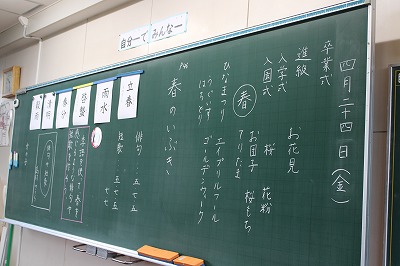 自分一でみんな一
四月二十四日(金)
卒業式
進級
入学式
入園式
お花見
桜
花粉
春
お団子
桜もち
てりたま
ひなまつり
うぐいす
はちとり
エイプリルフール
ゴールデンウィーク
春のいぶき
俳句…五七五
短歌…五七五
七七
立春
雨水
啓蟄
春分
清明
穀雨